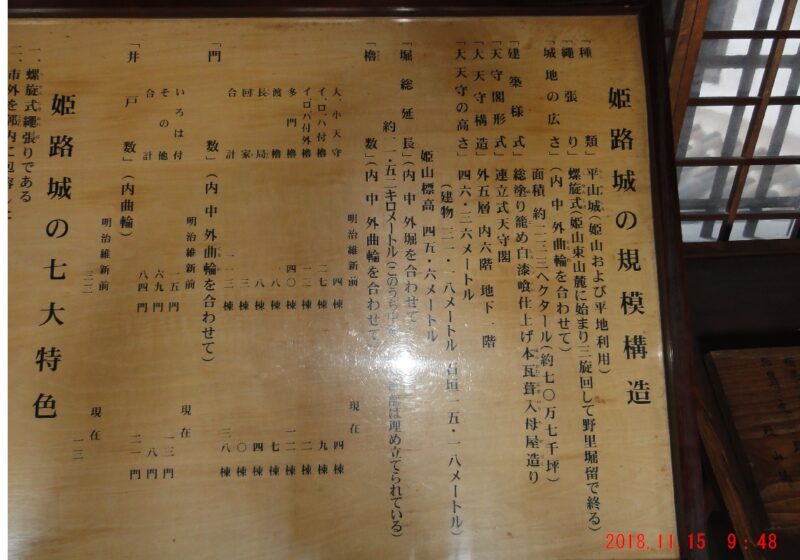 姫路城の規模構造
「種類」平山城(姫山および平地利用)
「縄張り」螺旋式(姫山東山麓に始まり三旋回して野里堀留で終る)
「城地の広さ」(内 中 外曲輪を合わせて)
面積 約二三三ヘクタール(約七〇万七千坪)
「建築様式」総塗り籠め白漆喰仕上げ本瓦葺入母屋造り
「天守閣形式」連立式天守閣
「大天守構造」外五層 内六階 地下一階
「大天守の高さ」四六・三六メートル
(建物 三一・一八メートル 石垣一五・一八メートル)
姫山標高 四五・六メートル
「堀総延長」(内 中 外堀を合わせて)
約一一・五三キロメートル(このうち中 部は埋め立てられている)
「櫓数」(内 中 外曲輪を合わせて)
明治維新前 現在
大、小天守 四棟 四棟
イ、ロ、ハ付櫓 二七棟 九棟
イロハ付外 一二棟 二棟
多門櫓 四〇棟 一二棟
渡櫓 八棟 七棟
長局 八棟 四棟
回家 三棟 〇棟
合計 一一三棟 三八棟
「門数」(内 中 外曲輪を合わせて)
明治維新前 現在
いろは付 一五門 一三門
その他 六九門 八門
合計 八四門 二一門
「井戸数」(内曲輪)
明治維新前 現在
三三 一三
姫路城の七大特色
一、螺旋式縄張りである
二、市外を郭内に包容した
2018.11.15 9:48